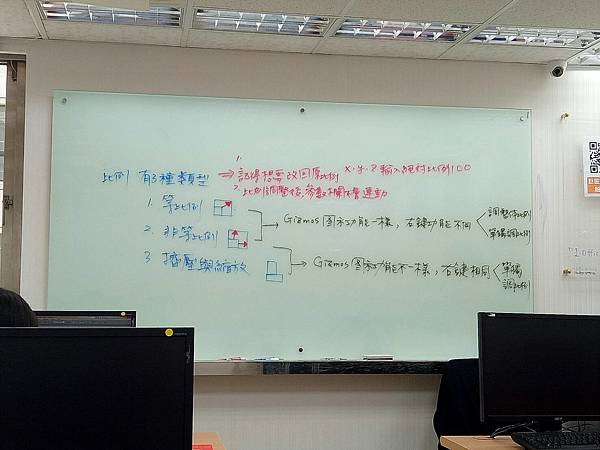 比例 有3種類型 ⇒ 1. 記得想要改回原比例 X.Y.Z 輸入絕對比例100
2. 比例調整後,參數欄不會連動
1. 等比例
2. 非等比例
Gizmos 圖示功能一樣,右鍵功能不同
調整 比例
單獨調比例
3. 擠壓與縮放
Gizmos 圖示功能不一樣,右鍵相同
單獨
調比例